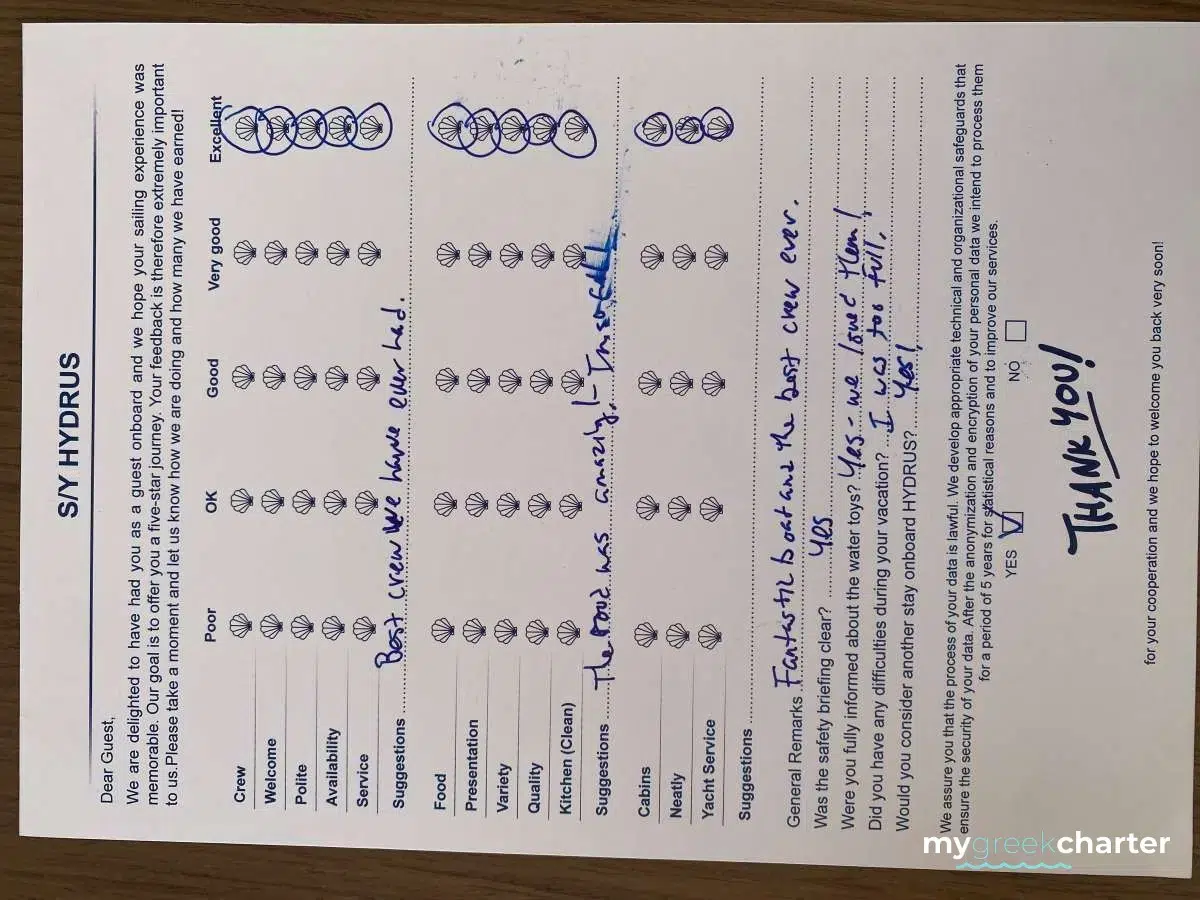 S/Y HYDRUS
Dear Guest,
We are delighted to have had you as a guest onboard and we hope your sailing experience was
memorable. Our goal is to offer you a five-star journey. Your feedback is therefore extremely important
to us.Please take a moment and let us know how we are doing and how many we have earned!
Poor OK Good Very good Excellent
Crew
Welcome
Polite
Availability
Service
Suggestions Best crew we have ever had.
Food
Presentation
Variety
Quality
Kitchen (Clean)
Suggestions The food was amazing! -
Cabins
Neatly
Yacht Service
Suggestions
General Remarks Fantastic boat and the best crew ever.
Was the safety briefing clear? Yes
Were you fully informed about the water toys? Yes - we loved them!
Did you have any difficulties during your vacation? I was too full.
Would you consider another stay onboard HYDRUS? Yes!
We assure you that the process of your data is lawful. We develop appropriate technical and organizational safeguards that
ensure the security of your data. After the anonymization and encryption of your personal data we intend to process them
for a period of 5 years for statistical reasons and to improve our services.
YES NO
THANK YOU!
for your cooperation and we hope to welcome you back very soon!
mygreekcharter